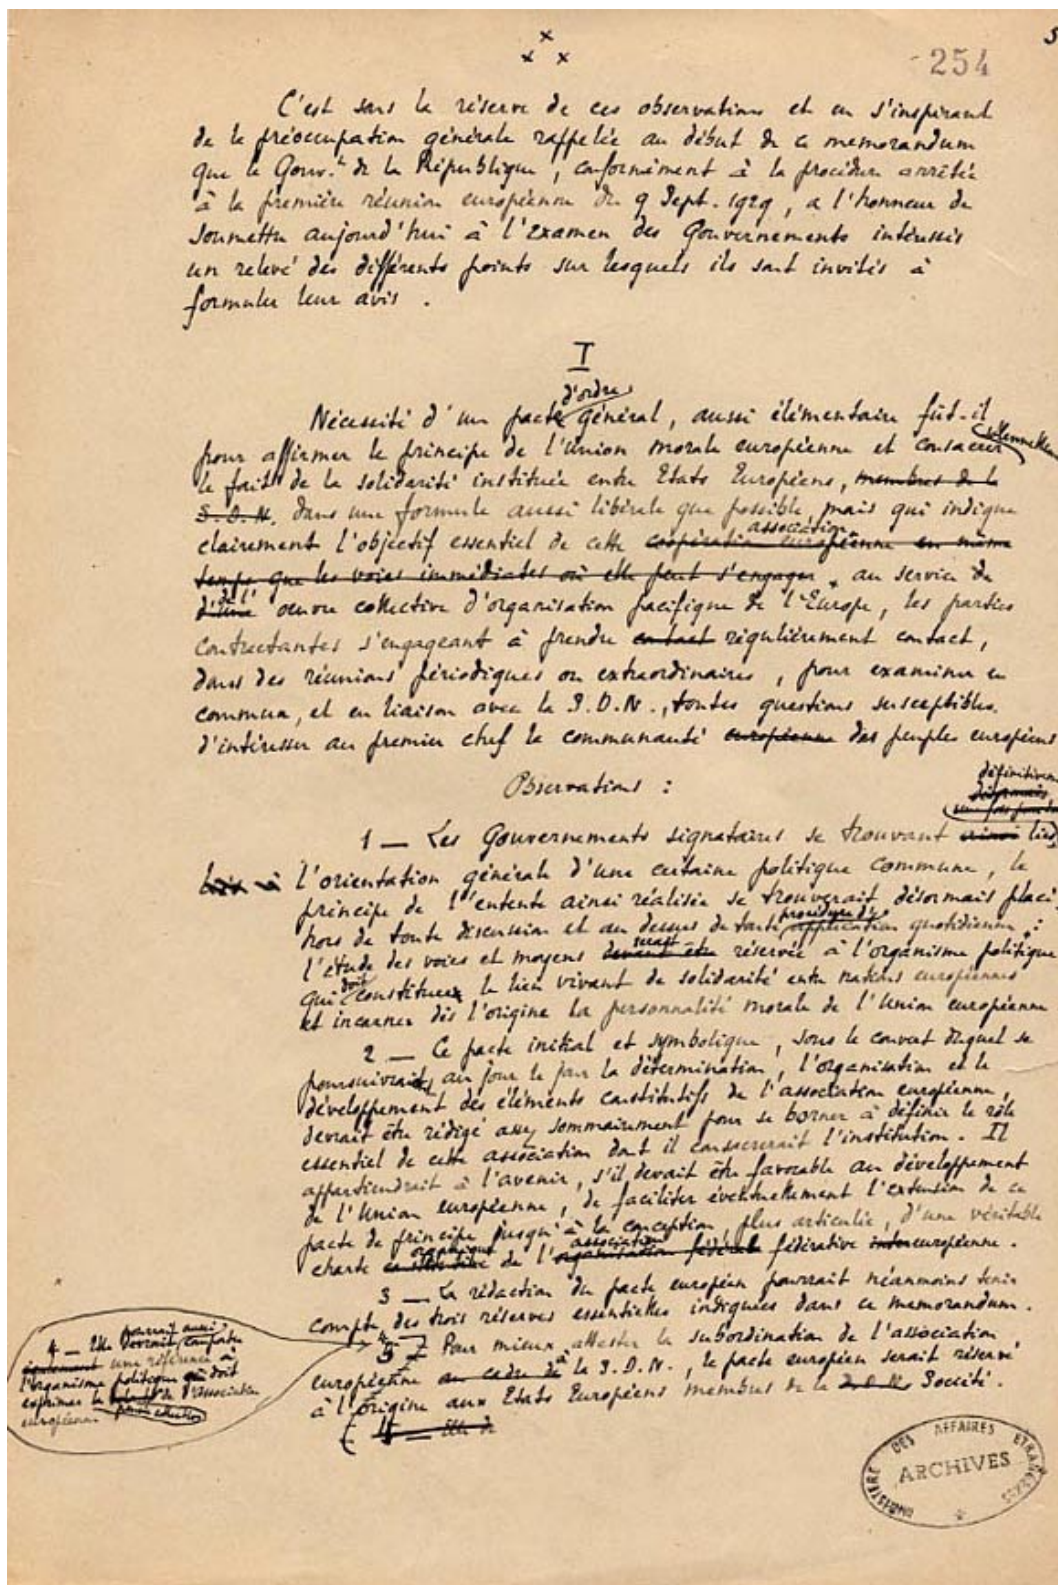 x
x x
5
254
C'est sous la réserve de ces observations et en s'inspirant
de la préoccupation générale rappelée au début de ce memorandum
que le Gouv.t de la République, conformément à la procédure arrêtée
à la première réunion européenne du 9 Sept. 1929, a l'honneur de
soumettre aujourd'hui à l'examen des Gouvernements intéressés
un relevé des différents points sur lesquels ils sont invités à
formuler leur avis.
I
d'ordre
Nécessité d'un pacte général, aussi élémentaire fût-il
pour affirmer le principe de l'Union morale européenne et consacrer
le fait de la solidarité instituée entre Etats Européens, membres de la
S.D.N. dans une formule aussi libérale que possible, mais qui indique
association
clairement l'objectif essentiel de cette coopération européenne en même
temps que les voies immédiates où elle peut s'engager, au service de
de l'
d'une oeuvre collective d'organisation pacifique de l'Europe, les parties
contractantes s'engageant à prendre contact régulièrement contact,
dans des réunions périodiques ou extraordinaires, pour examiner en
commun, et en liaison avec la S.D.N., toutes questions susceptibles
d'intéresser au premier chef la communauté européenne des peuples européens
Observations :
désormais
1 — Les Gouvernements signataires se trouvant ainsi liés
l'orientation générale d'une certaine politique commune, le
principe de l'entente ainsi réalisée se trouverait désormais placé
procédure d'
hors de toute discussion et au dessus de toute application quotidienne :
serait
l'étude des voies et moyens devant être réservée à l'organisme politique
doit
qui constituer le lien vivant de solidarité entre nations européennes
et incarner dès l'origine la personnalité morale de l'Union européenne
2 — Ce pacte initial et symbolique, sous le couvert duquel se
poursuivrait au jour le jour la détermination, l'organisation et le
développement des éléments constitutifs de l'association européenne,
devrait être rédigé assez sommairement pour se borner à définir le rôle
essentiel de cette association dont il consacrerait l'institution. Il
appartiendrait à l'avenir, s'il devait être favorable au développement
de l'Union européenne, de faciliter éventuellement l'extension de ce
pacte de principe jusqu'à la conception, plus articulée, d'une véritable
organique association
charte constitutive de l'organisation fédérale fédérative intereuropéenne.
3 — La rédaction du pacte européen pourrait néanmoins tenir
compte des trois réserves essentielles indiquées dans ce memorandum.
5 — Pour mieux attester la subordination de l'association
à
européenne au cadre de la S.D.N., le pacte européen serait réservé
à l'origine aux Etats Européens membres de la S.D.N. Société.
pourrait aussi
4 — Elle devrait comporter
également une référence à
l'organisme politique qui doit
exprimer la de l'association
européenne
MINISTERE DES AFFAIRES ETRANGERES
ARCHIVES